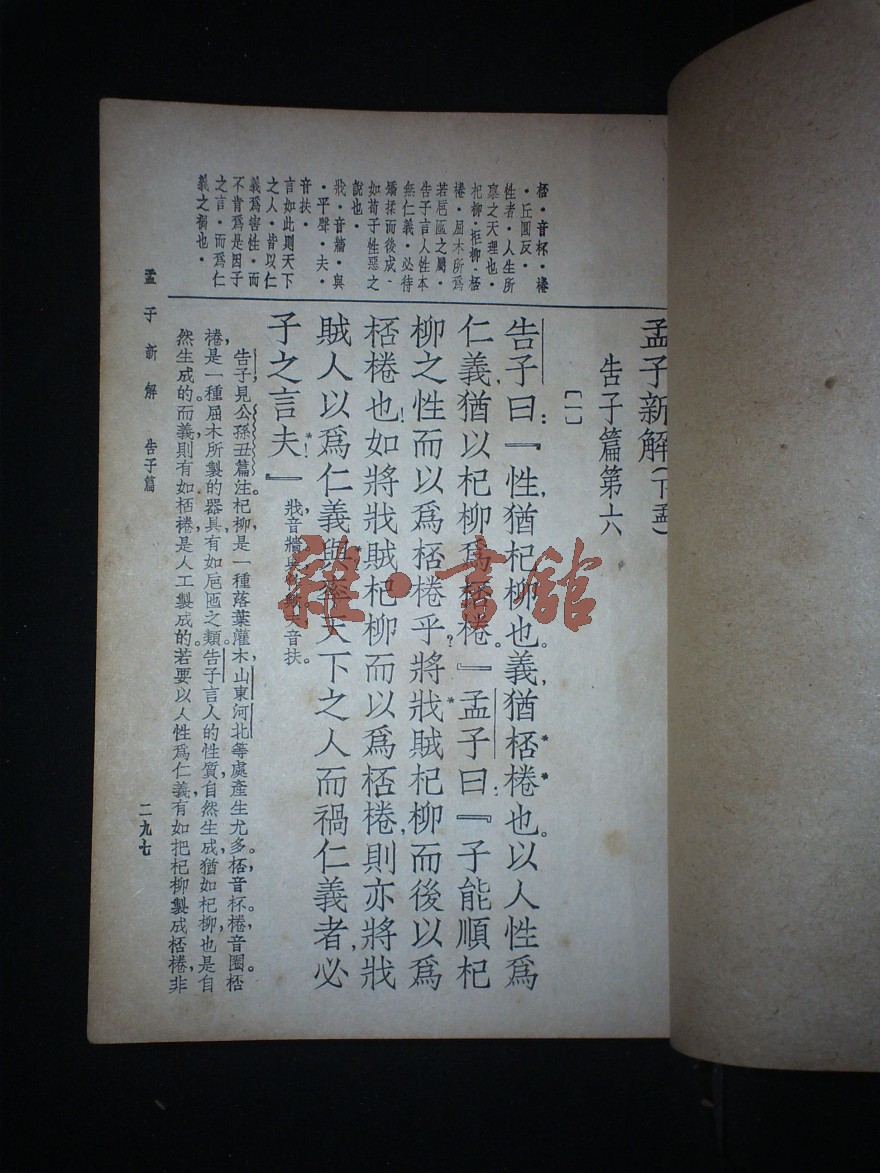 孟子新解(下孟)
告子篇第六
〔一〕
告子曰:『性,猶杞柳也。義,猶桮棬也。以人性爲
仁義,猶以杞柳爲桮棬。』孟子曰:『子能順杞
柳之性而以爲桮棬乎?將戕賊杞柳而後以爲
桮棬也!如將戕賊杞柳而以爲桮棬,則亦將戕
賊人以爲仁義與?率天下之人而禍仁義者,必
子之言夫!』
戕,音牆。與,音扶。
桮・音杯・棬
・丘圓反・
性者・人生所
稟之天理也・
杞柳・柜柳・桮
棬・屈木所爲
若巵匜之屬・
告子言人性本
無仁義・必待
矯揉而後成・
如荀子性惡之
說也・
戕・音牆・與
・平聲・夫・
音扶・
言如此則天下
之人・皆以仁
義爲害性・而
不肯爲是因子
之言・而爲仁
義之禍也・
告子,見公孫丑篇注。杞柳,是一種落葉灌木,山東河北等處產生尤多。桮音杯,棬音圈。桮
棬,是一種屈木所製的器具,有如巵匜之類。告子言人的性質,自然生成,猶如杞柳也是自
然生成的。而義則有如桮棬,是人工製成的。若要以人性爲仁義,有如把杞柳製成桮棬,非
孟子新解 告子篇
二九七
雜・書館